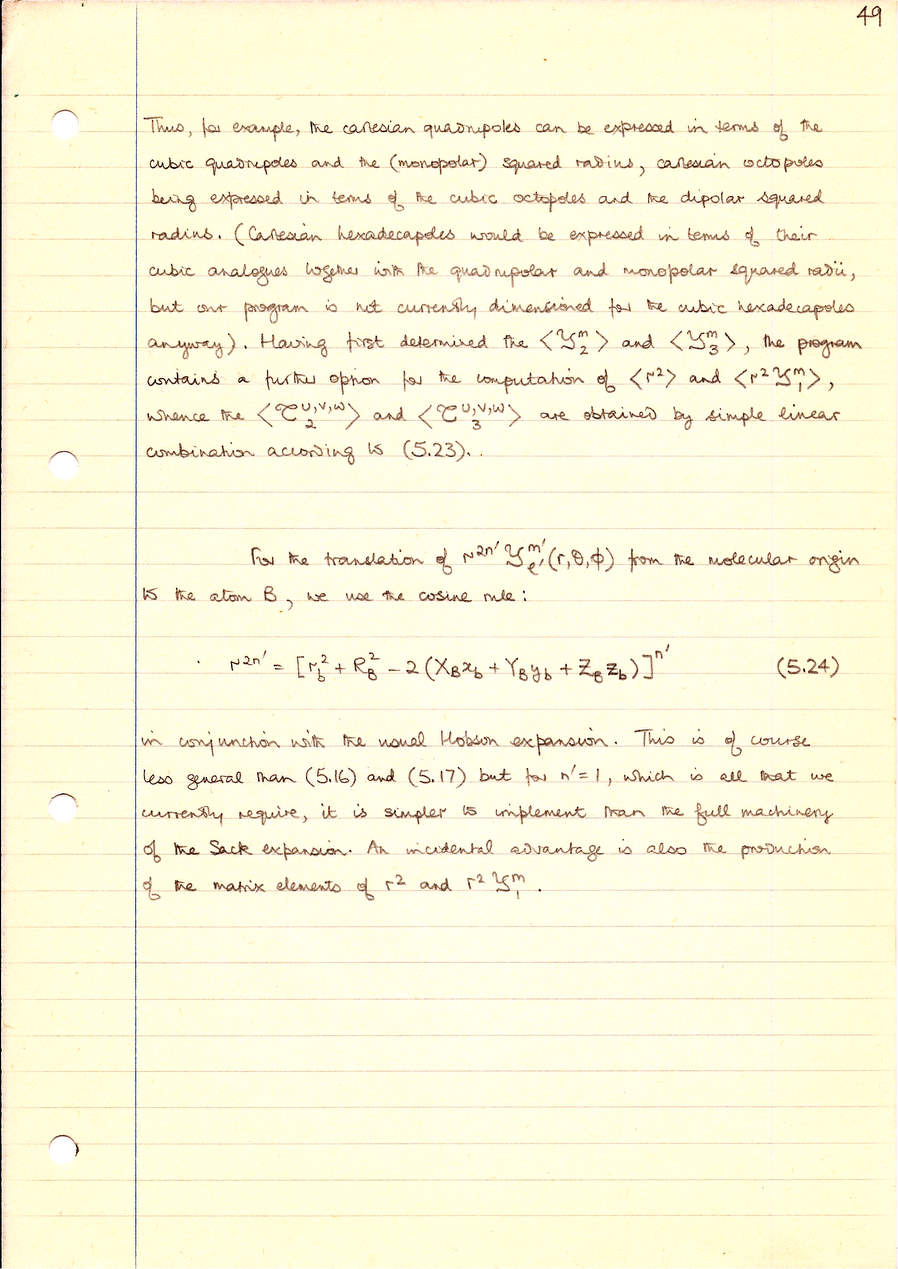 49
Thus, for example, the cartesian quadrupoles can be expressed in terms of the
cubic quadrupoles and the (monopolar) squared radius, cartesian octopoles
being expressed in terms of the cubic octopoles and the dipolar squared
radius. (Cartesian hexadecapoles would be expressed in terms of their
cubic analogues together with the quadrupolar and monopolar squared radii,
but our program is not currently dimensioned for the cubic hexadecapoles
anyway). Having first determined the ⟨𝒴₂ᵐ⟩ and ⟨𝒴₃ᵐ⟩, the program
contains a further option for the computation of ⟨r²⟩ and ⟨r²𝒴₁ᵐ⟩,
whence the ⟨𝒯₂^{u,v,w}⟩ and ⟨𝒯₃^{u,v,w}⟩ are obtained by simple linear
combination according to (5.23).
For the translation of r^{2n'} 𝒴_{l'}^{m'}(r,θ,ϕ) from the molecular origin
to the atom B, we use the cosine rule:
r^{2n'} = [r_b² + R_B² − 2(X_B x_b + Y_B y_b + Z_B z_b)]^{n'} (5.24)
in conjunction with the usual Hobson expansion. This is of course
less general than (5.16) and (5.17) but for n'=1, which is all that we
currently require, it is simpler to implement than the full machinery
of the Sack expansion. An incidental advantage is also the production
of the matrix elements of r² and r² 𝒴₁ᵐ.